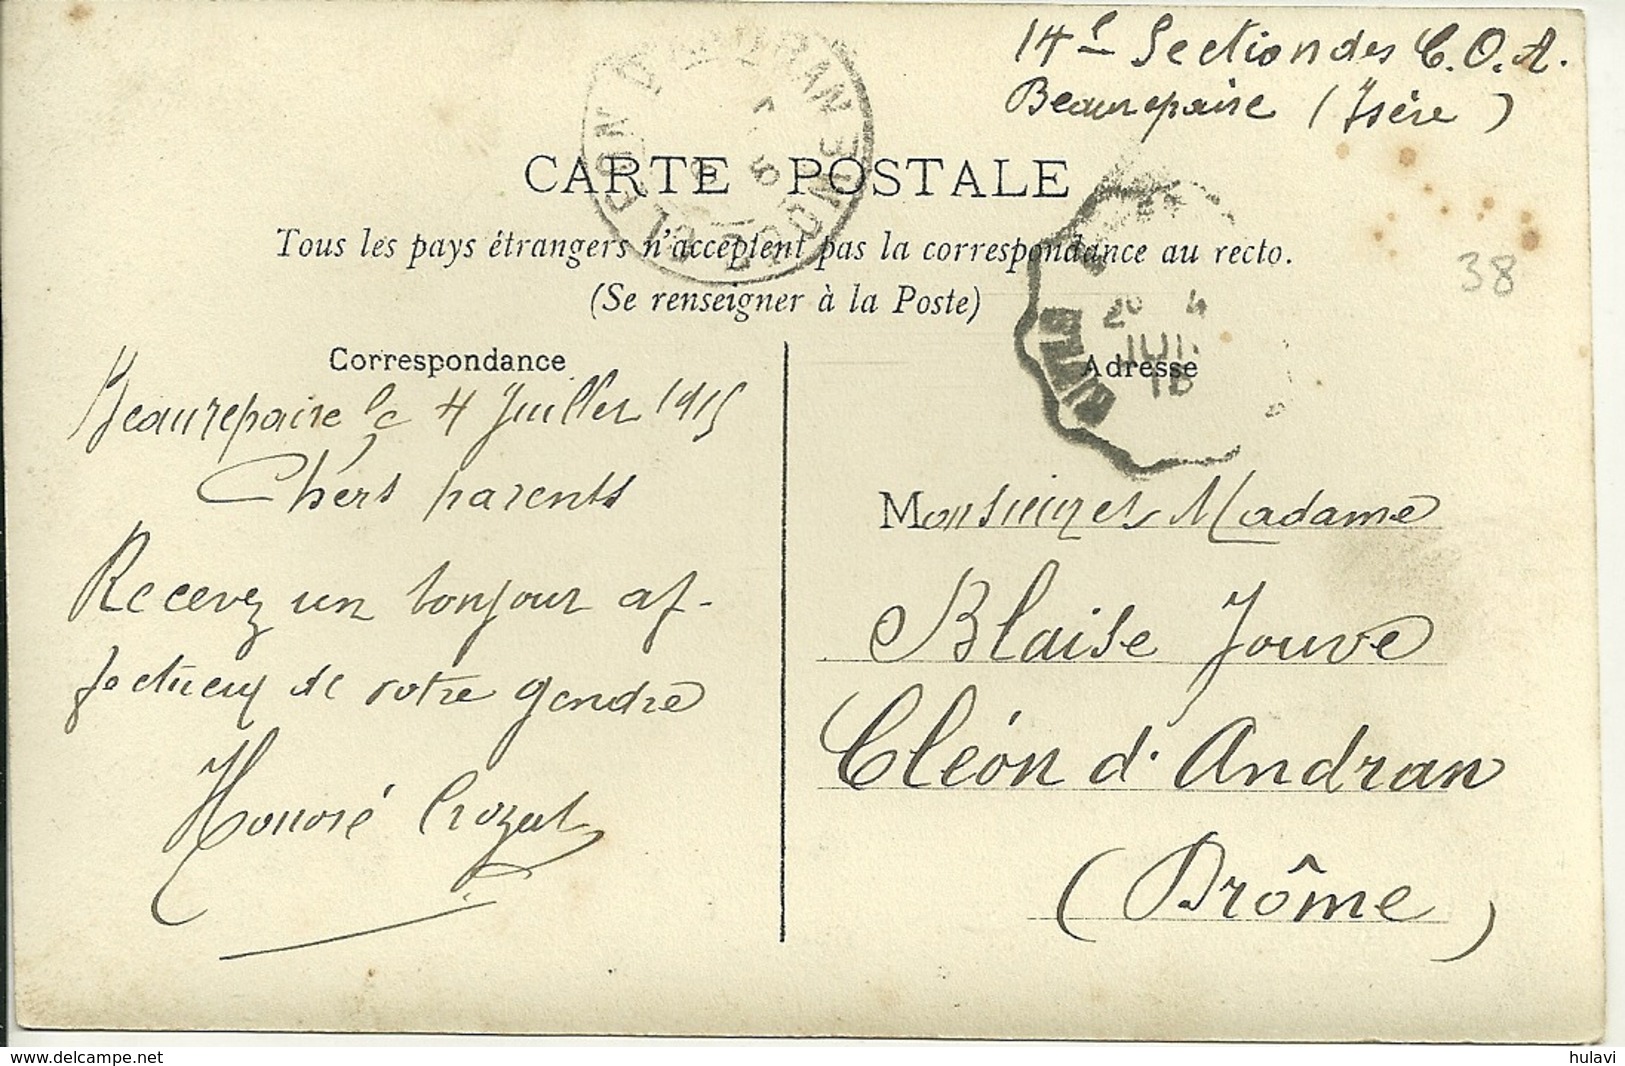 14e Section des C.O.A.
Beaurepaire (Isère)
CARTE POSTALE
Tous les pays étrangers n'acceptent pas la correspondance au recto.
(Se renseigner à la Poste)
38
Correspondance
Beaurepaire le 4 Juillet 1915
Chers parents
Recevez un bonjour af-
fectueux de votre gendre
Honoré Crozat
Adresse
Monsieur et Madame
Blaise Jouve
Cléon d'Andran
(Drôme)
www.delcampe.net
hulavi